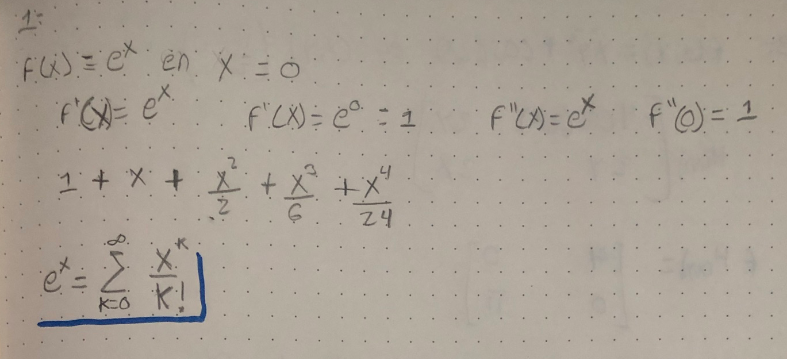 1:
f(x) = e^x en x = 0
f'(x) = e^x f'(x) = e^0 = 1 f''(x) = e^x f''(0) = 1
1 + x + x^2/2 + x^3/6 + x^4/24
e^x = ∑_{k=0}^{∞} x^k/k!